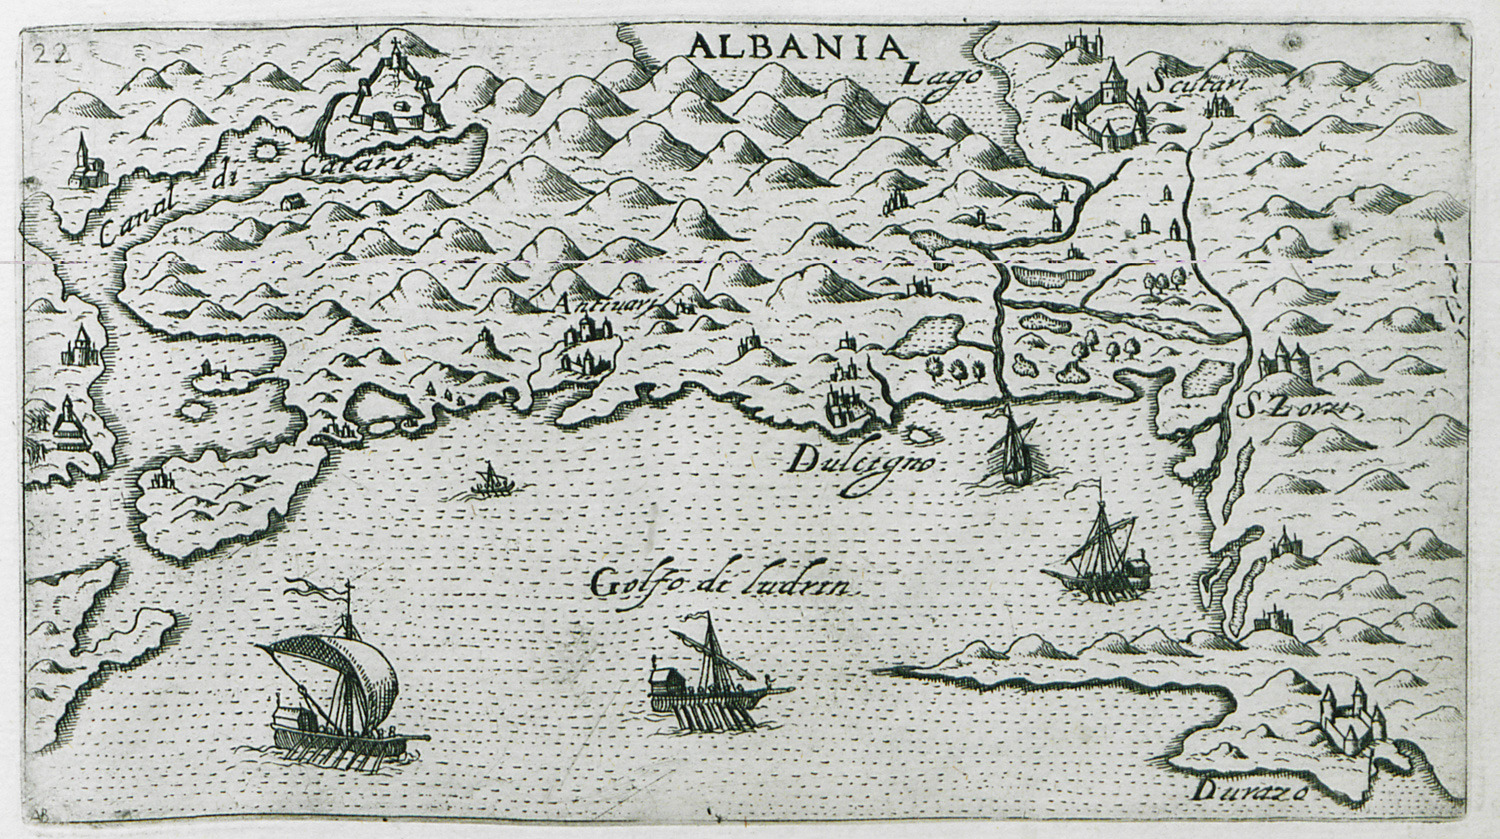 22
ALBANIA
Lago
Scutari
Canal di Cataro
Antiuari
S Zorzi
Dulcigno
Golfo de ludrin
Durazo